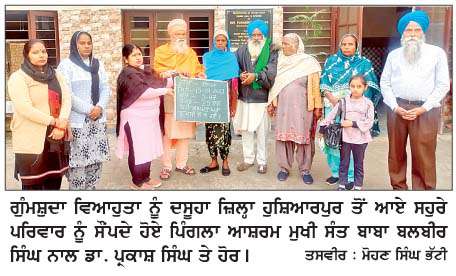 ਗੁੰਮਸ਼ੁਦਾ ਵਿਆਹੁਤਾ ਨੂੰ ਦਸੂਹਾ ਜ਼ਿਲ੍ਹਾ ਹੁਸ਼ਿਆਰਪੁਰ ਤੋਂ ਆਏ ਸਹੁਰੇ
ਪਰਿਵਾਰ ਨੂੰ ਸੌਂਪਦੇ ਹੋਏ ਪਿੰਗਲਾ ਆਸ਼ਰਮ ਮੁਖੀ ਸੰਤ ਬਾਬਾ ਬਲਬੀਰ
ਸਿੰਘ ਨਾਲ ਡਾ. ਪ੍ਰਕਾਸ਼ ਸਿੰਘ ਤੇ ਹੋਰ। ਤਸਵੀਰ : ਮੋਹਣ ਸਿੰਘ ਭੱਟੀ